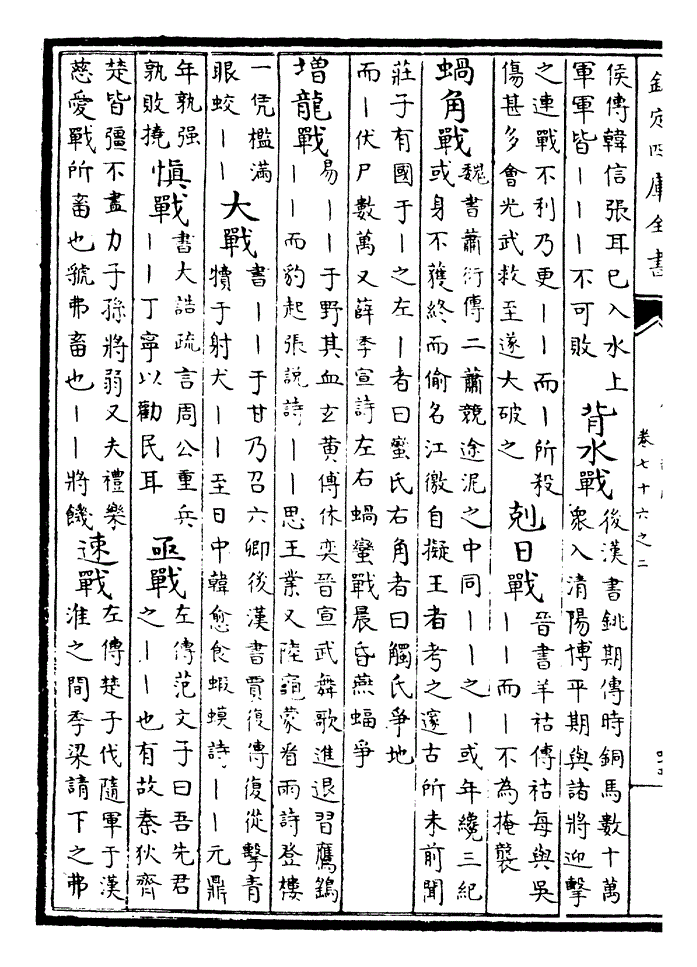 欽定四庫全書
卷七十六之二
侯傳韓信張耳已入水上
軍軍皆丨丨丨不可敗
背水戰
後漢書銚期傳時銅馬數十萬
眾入清陽博平期與諸將迎擊
之連戰不利乃更丨丨而丨所殺
傷甚多會光武救至遂大破之
剋日戰
晉書羊祜傳祜每與吳
丨丨而丨不為掩襲
蝸角戰
魏書蕭衍傳二蕭競途泥之中同丨丨之丨或年纔三紀
或身不獲終而偷名江徼自擬王者考之邃古所未前聞
莊子有國于丨之左丨者曰蠻氏右角者曰觸氏爭地
而丨伏尸數萬又薛季宣詩左右蝸蠻戰晨昏燕蝠爭
增龍戰
易丨丨于野其血玄黃傅休奕晉宣武舞歌進退習鷹鷂
丨丨而豹起張說詩丨丨思王業又陸龜蒙省雨詩登樓
一凭檻滿
眼蛟丨丨
大戰
書丨丨于甘乃召六卿後漢書賈復傳復從擊青
犢于射犬丨丨至日中韓愈食蝦蟆詩丨丨元鼎
年孰强
孰敗撓
慎戰
書大誥疏言周公重兵
丨丨丁寧以勸民耳
亟戰
左傳范文子曰吾先君
之丨丨也有故秦狄齊
楚皆彊不盡力子孫將弱又夫禮樂
慈愛戰所畜也虢弗畜也丨丨將饑
速戰
左傳楚子伐隨軍于漢
淮之間季梁請下之弗